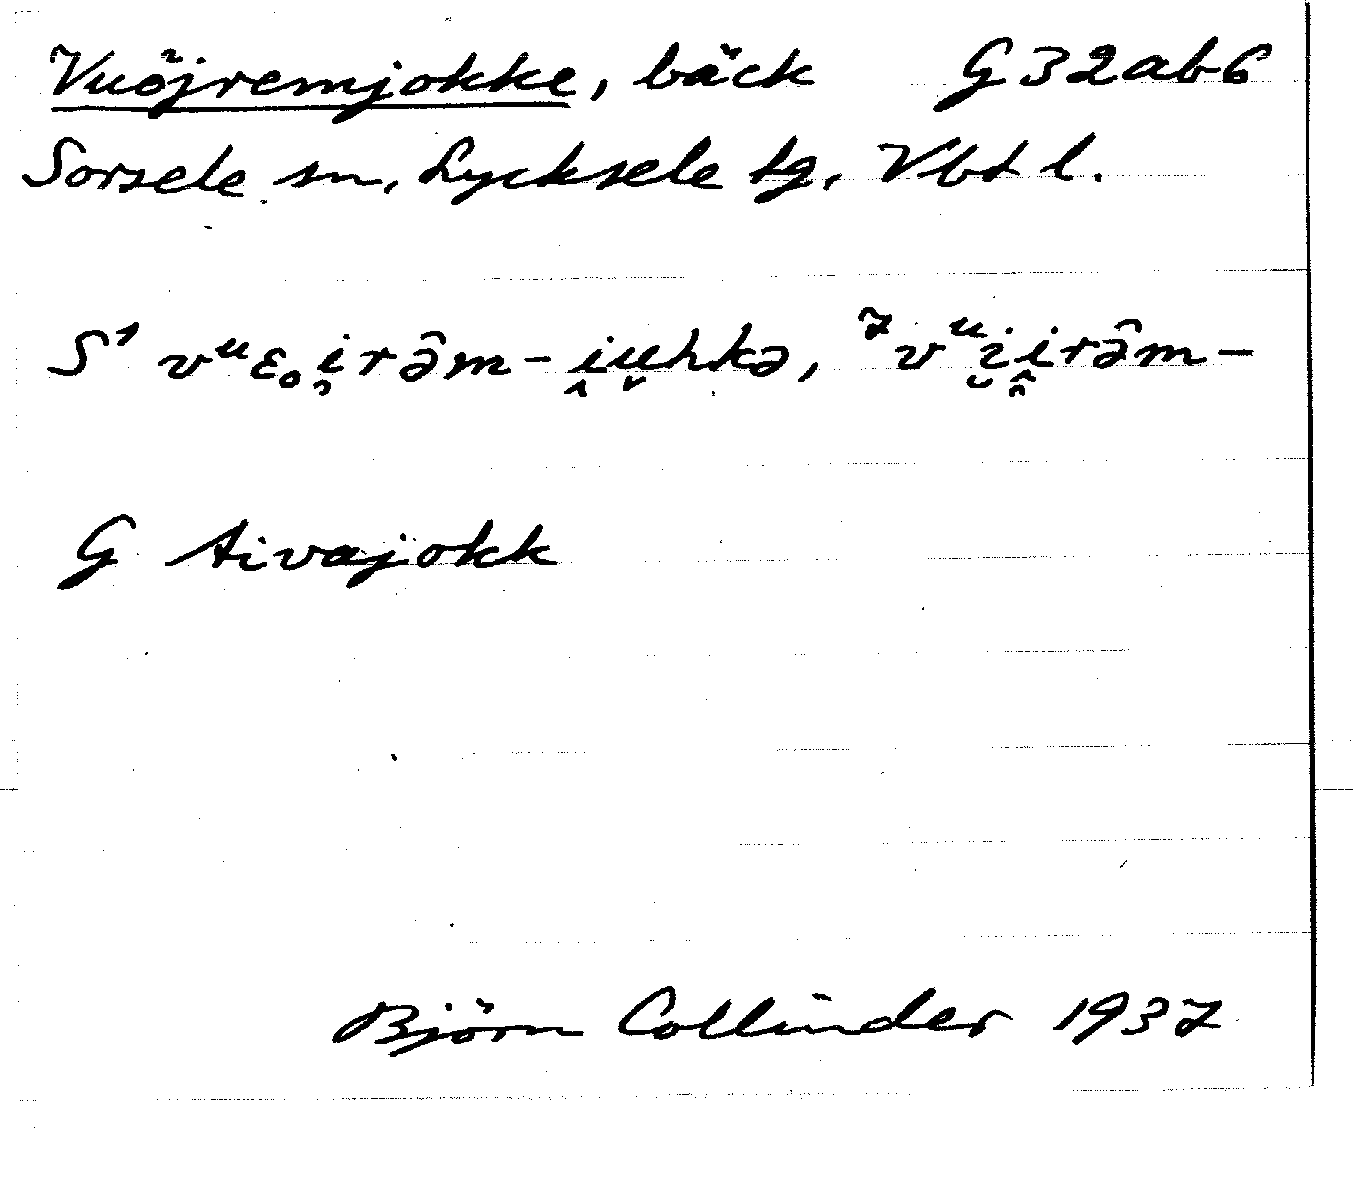 Vuöjremjokke, bäck G32ab6
Sorsele sn, Lycksele tg, Vbt l.
S¹ vᵘɛₒi̜râm-i̭u̬hkə, ⁷vᵘi̮i̭râm-
G Aivajokk
Björn Collinder 1937